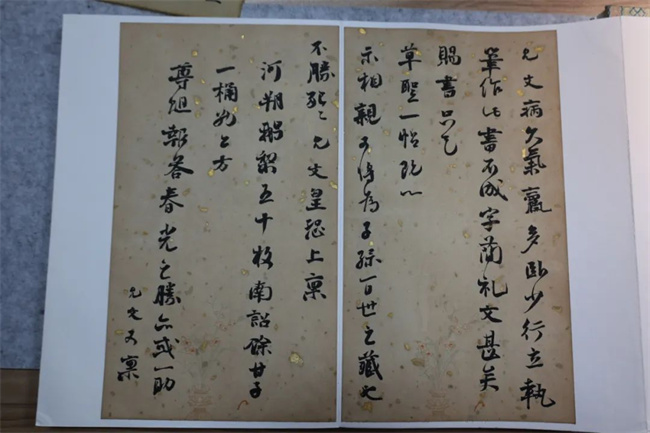 允文病久氣羸多臥少行立執
筆作此書不成字蕳礼文甚矣
賜書只乞
草聖一帖玩以
示相親可傳為子孫百世之藏也
不勝允文皇恐上稟
河朔鵝梨五十枚南詔餘甘子
一桶如上方
尊俎報答春光之勝亦或一助
允文又稟